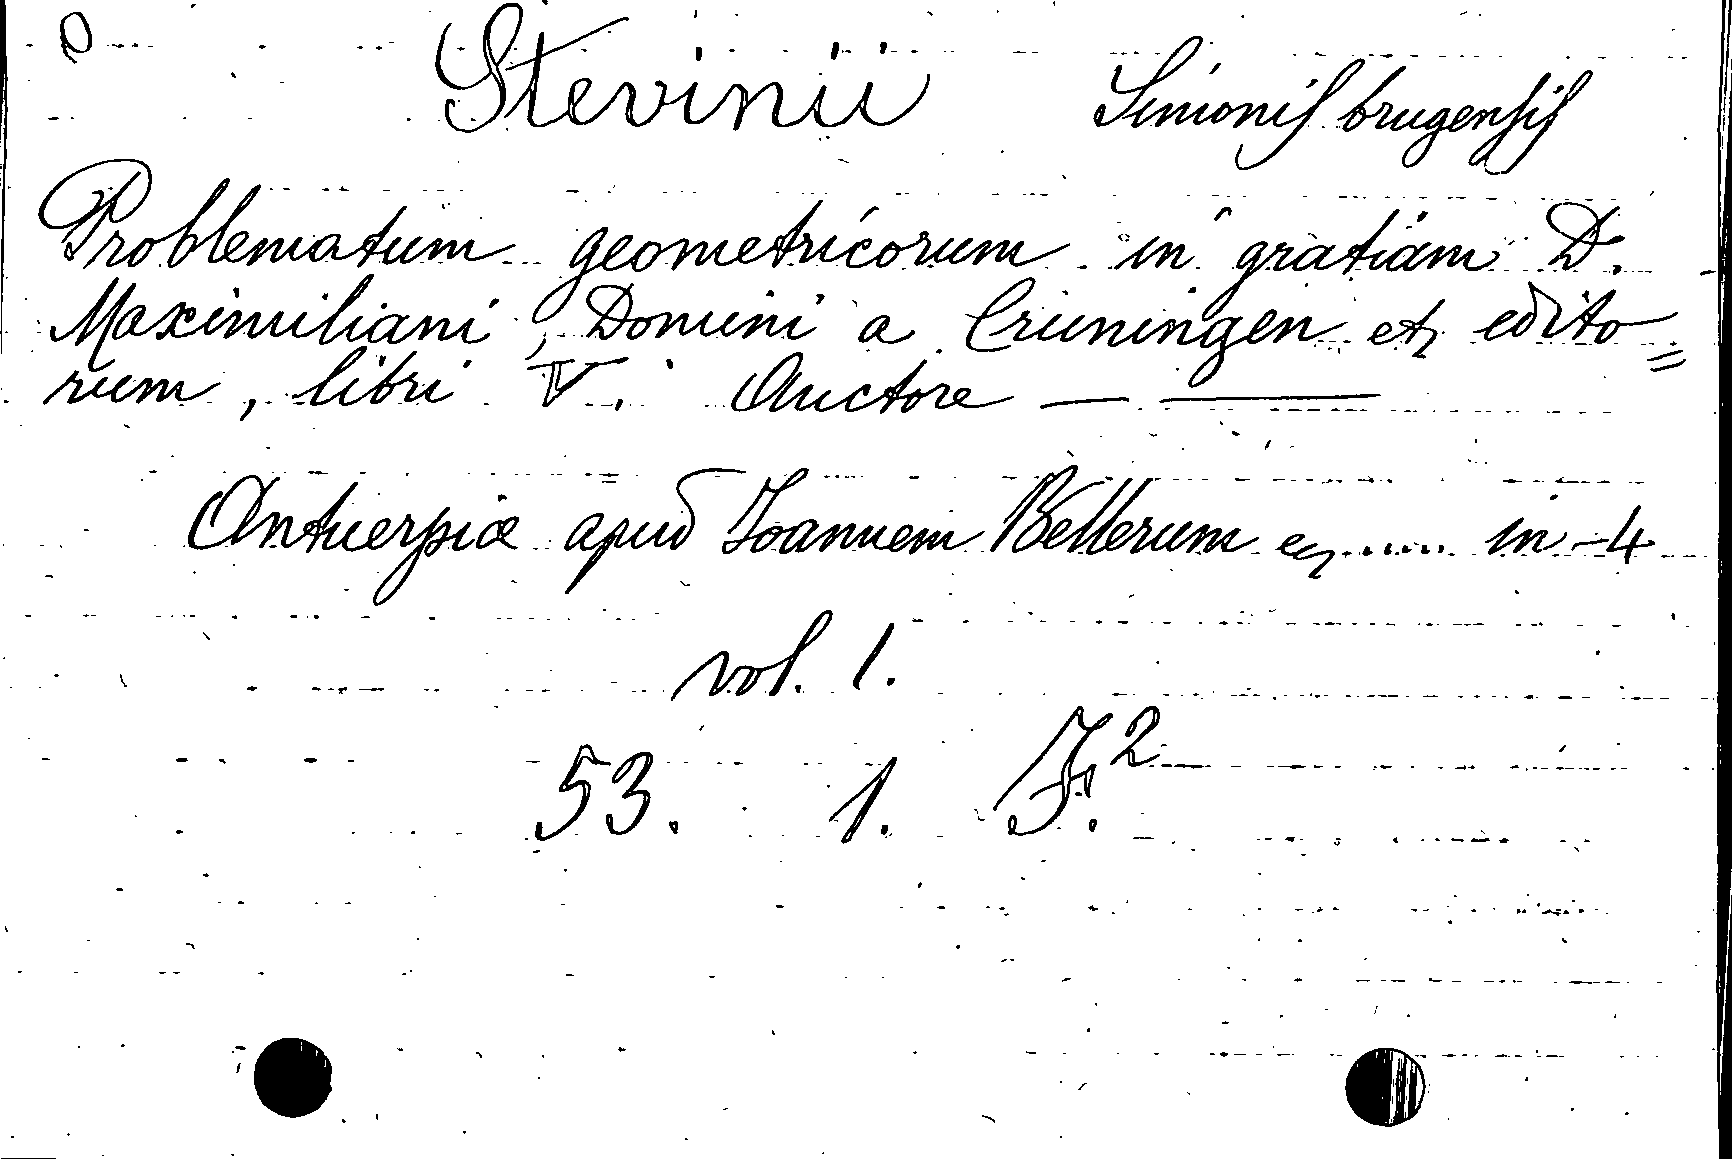 Stevinii Simonis brugensis
Problematum geometricorum in gratiam D.
Maximiliani, Domini a Cruningen etz edito=
rum, libri V. Auctore — —
Antuerpiæ apud Joannem Bellerum ez .... in-4
vol. 1.
53. 1. F.²